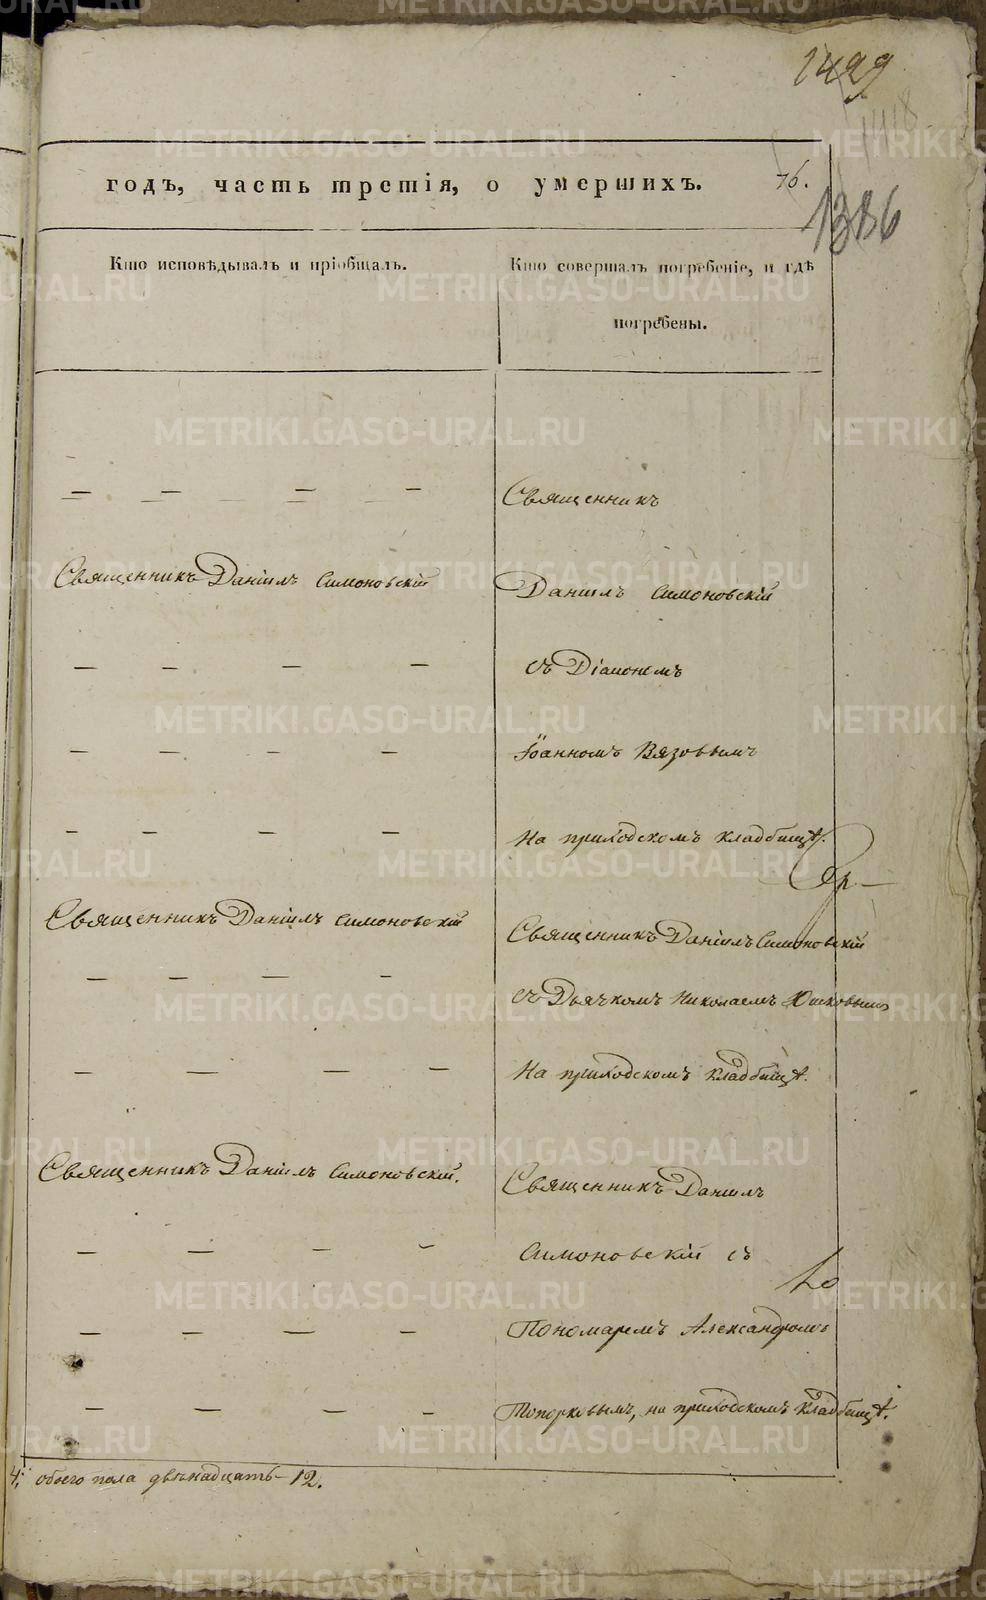 1499
годъ, часть третія, о умершихъ.
76.
1386
Кто исповѣдывалъ и пріобщалъ.
Кто совершалъ погребеніе, и гдѣ
погребены.
— — — —
Священникъ
Священникъ Даніилъ Симоновскій
Даніилъ Симоновскій
— — — —
съ Діакономъ
— — — —
Іоанномъ Вязовымъ
— — — —
На приходскомъ кладбищѣ.
Священникъ Даніилъ Симоновскій
Священникъ Даніилъ Симоновскій
— — — —
съ Дьячкомъ Николаемъ
— — — —
На приходскомъ кладбищѣ.
Священникъ Даніилъ Симоновскій.
Священникъ Даніилъ
— — — —
Симоновскій съ
— — — —
Пономаремъ Александромъ
— — — —
Топорковымъ, на приходскомъ кладбищѣ.
4; обоего пола двѣнадцать — 12.
METRIKI.GASO-URAL.RU